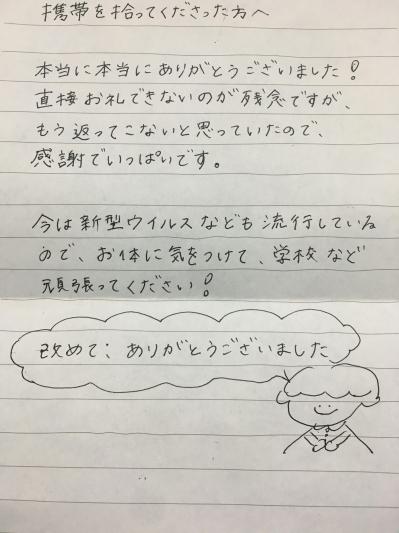 携帯を拾ってくださった方へ
本当に本当にありがとうございました！
直接お礼できないのが残念ですが、
もう返ってこないと思っていたので、
感謝でいっぱいです。
今は新型ウイルスなども流行している
ので、お体に気をつけて、学校など
頑張ってください！
改めて、ありがとうございました